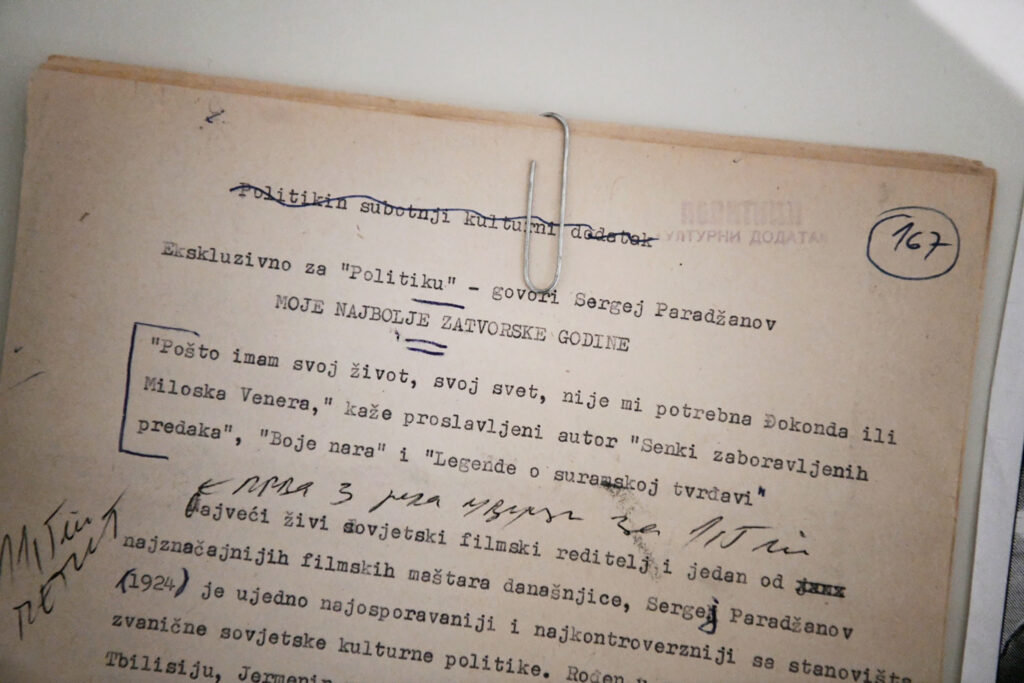 Politikin subotnji kulturni dodatak
КУЛТУРНИ ДОДАТАК
167
Ekskluzivno za "Politiku" - govori Sergej Paradžanov
MOJE NAJBOLJE ZATVORSKE GODINE
"Pošto imam svoj život, svoj svet, nije mi potrebna Đokonda ili
Miloska Venera," kaže proslavljeni autor "Senki zaboravljenih
predaka", "Boje nara" i "Legende o suramskoj tvrđavi"
прва 3 реда
Najveći živi sovjetski filmski reditelj i jedan od
najznačajnijih filmskih maštara današnjice, Sergej Paradžanov
(1924) je ujedno najosporavaniji i najkontroverzniji sa stanovišta
zvanične sovjetske kulturne politike. Rođen
Tbilisiju,